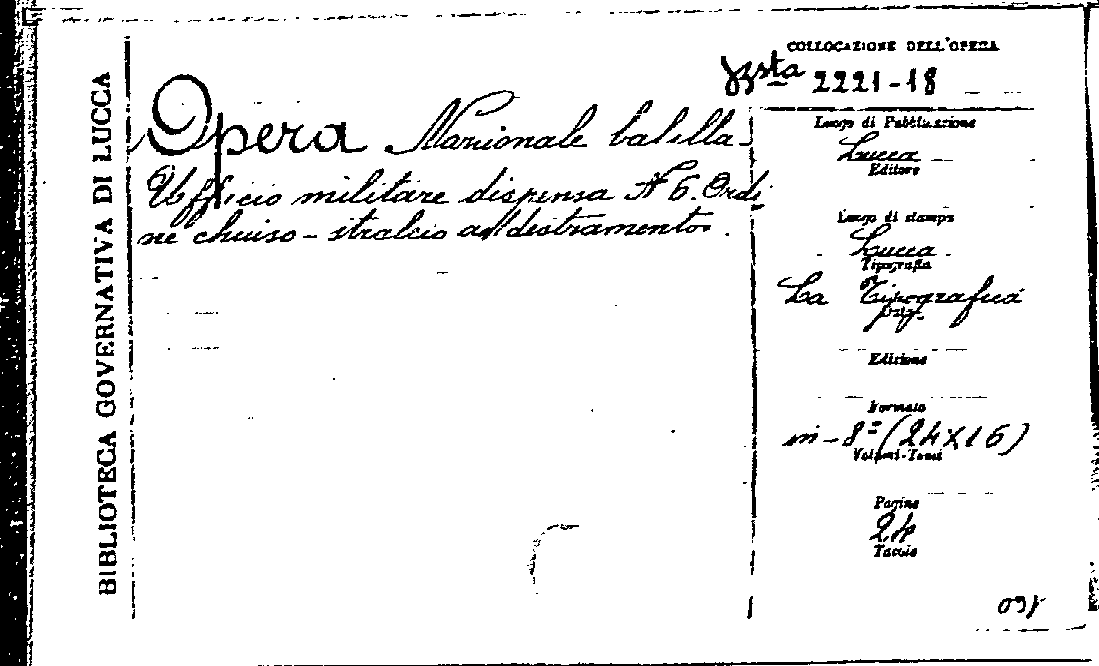 BIBLIOTECA GOVERNATIVA DI LUCCA
COLLOCAZIONE DELL'OPERA
Bsta 2221-18
Opera Nazionale balilla-
Ufficio militare dispensa N 6. Ordi
ne chiuso - stralcio addestramento.
Luogo di Pubblicazione
Lucca
Editore
Luogo di stampa
Lucca
Tipografia
La Tipografica
Data
Edizione
Formato
in-8º (24X16)
Volumi-Tomi
Pagine
24
Tavole